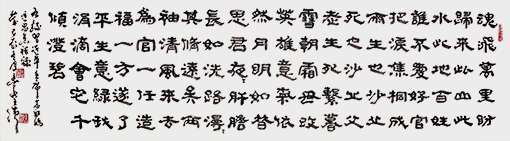 魂飛萬里盼
歸來此山此
水此地百姓
誰不愛好官
把淚焦桐成
雨生也沙丘
死也沙丘父
老生死繫暮
雪朝霜毋改
英雄意氣依
然月明如昔
思君夜夜肝膽
長如洗路漫漫
其修遠矣兩
袖清風來去
為官一任造
福一方遂了
平生意綠我
涓滴會它千
頃澄碧